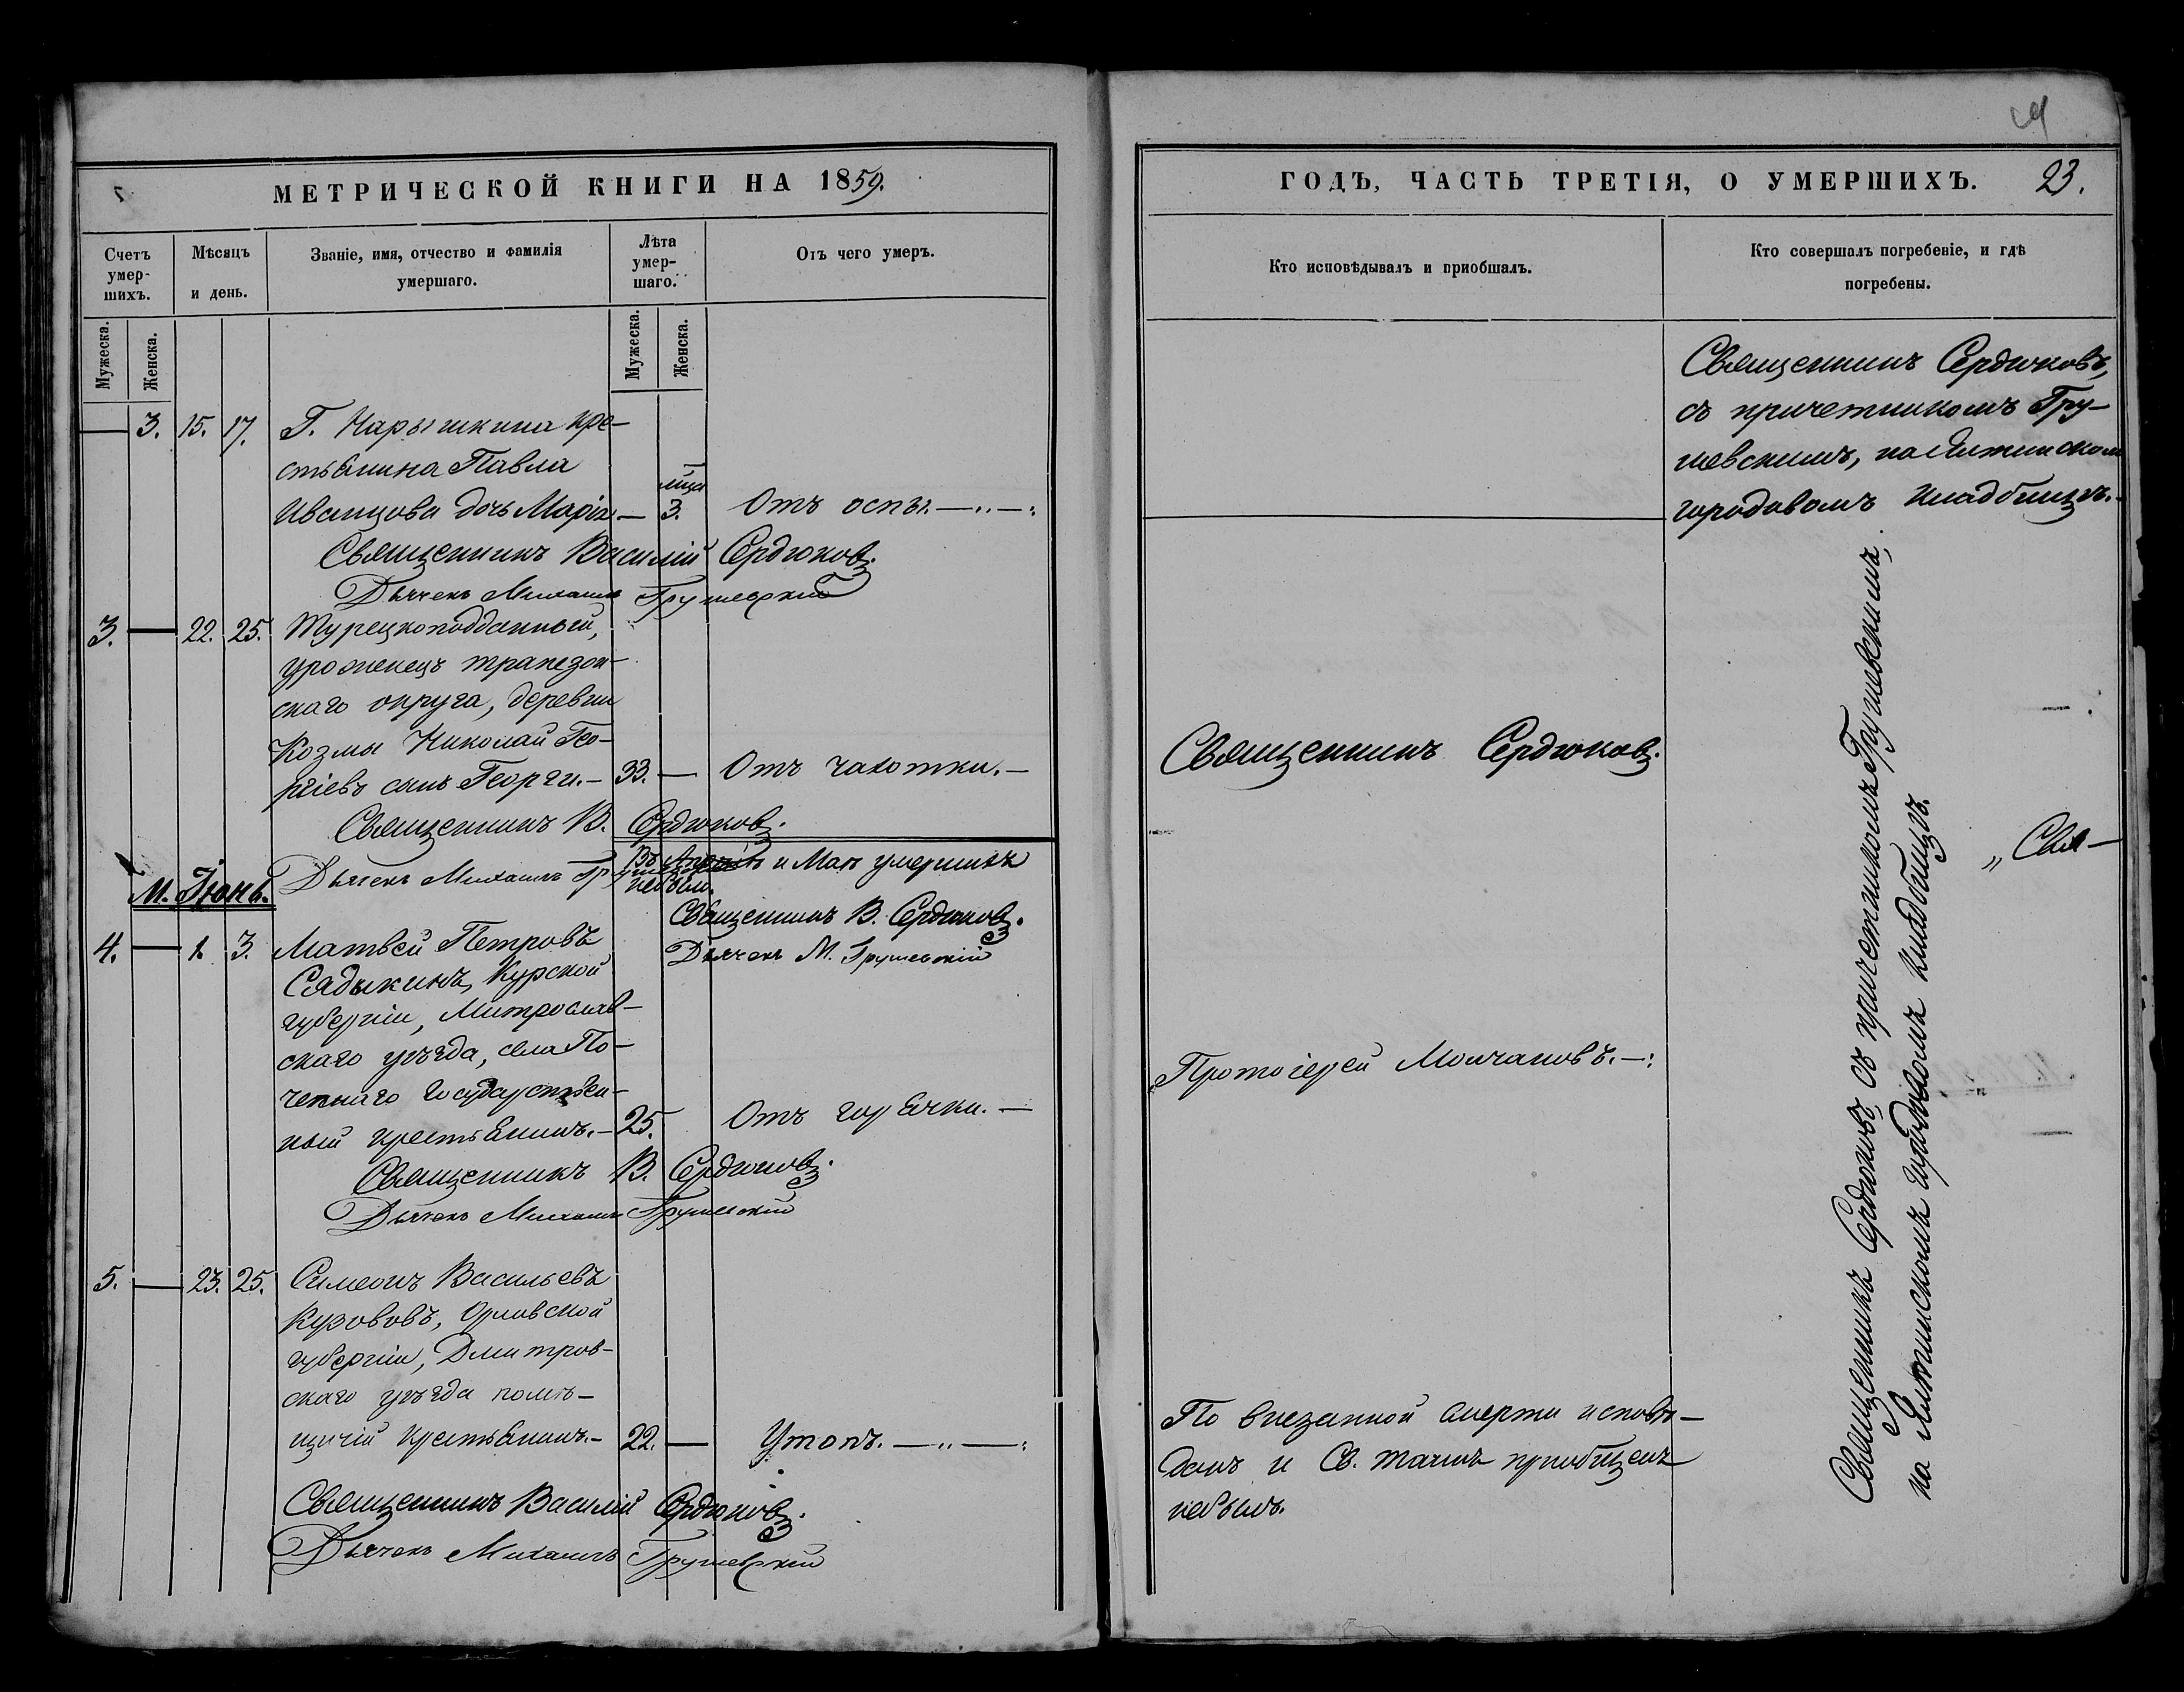 МЕТРИЧЕСКОЙ КНИГИ НА 1859.
Счетъ умер-шихъ.
Мѣсяцъ и день.
Званіе, имя, отчество и фамилія умершаго.
Лѣта умер-шаго.
Отъ чего умеръ.
Мужеска.
Женска.
Мужеска.
Женска.
3. 15. 17. Г. Нарышкина кре-
стьянина Павла
Иванцова дочь Марія. — мца 3. Отъ оспы. —
Священникъ Василій Сердюковъ.
Дьячекъ Михаилъ Грушевскій
3. — 22. 25. Турецкоподданный,
уроженецъ трапезон-
скаго округа, деревни
Козмы Николай Гео-
ргіевъ сынъ Георги. — 33. — Отъ чахотки. —
Священникъ В. Сердюковъ.
Дьячекъ Михаилъ Грушевскій
Въ Апрѣлѣ и Маѣ умершихъ
небыло.
Священникъ В. Сердюковъ.
Дьячекъ М. Грушевскій
М. Іюнь.
4. — 1. 3. Матвей Петровъ
Садыкинъ, Курской
губерніи, Митрослав-
скаго уѣзда, села По-
ченнаго Государствен-
ный крестьянинъ. — 25. Отъ горячки. —
Священникъ В. Сердюковъ.
Дьячекъ Михаилъ Грушевскій
5. — 23. 25. Симеонъ Васильевъ
Кузововъ, Орловской
губерніи, Дмитров-
скаго уѣзда помѣ-
щичій крестьянинъ. — 22. — Утопъ. —
Священникъ Василій Сердюковъ.
Дьячекъ Михаилъ Грушевскій
ГОДЪ, ЧАСТЬ ТРЕТІЯ, О УМЕРШИХЪ. 23.
Кто исповѣдывалъ и приобщалъ.
Кто совершалъ погребеніе, и гдѣ погребены.
Священникъ Сердюковъ,
съ причетникомъ Гру-
шевскимъ, на Ялтинском
городовомъ кладбищѣ.
Священникъ Сердюковъ.
Протоіерей Молчановъ. —
По внезапной смерти исповѣ-
данъ и Св. таинъ приобщенъ
небылъ.
Священникъ Сердюковъ, съ причетникомъ Грушевскимъ,
на Ялтинскомъ городовомъ кладбищѣ.
„ Свя-